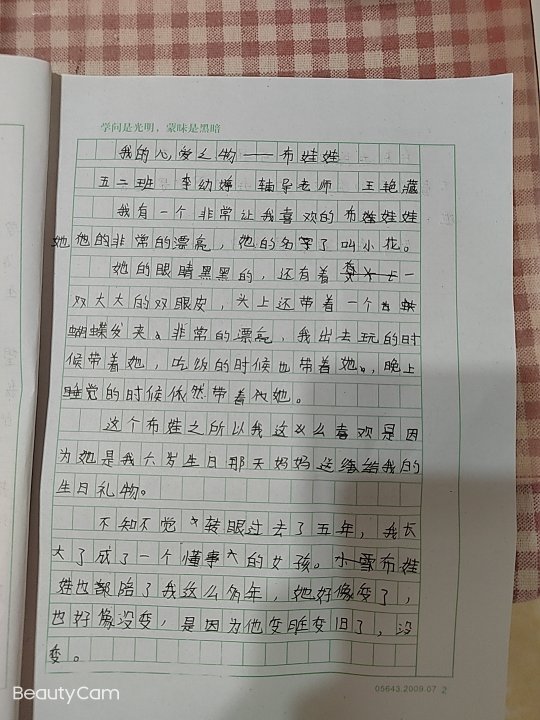 学问是光明，蒙昧是黑暗
我的心爱之物——布娃娃
五二班 李幼婷 辅导老师 王艳藏
我有一个非常让我喜欢的布娃娃娃
她她的非常的漂亮，她的名字了叫小花。
她的眼睛黑黑的，还有着一
双大大的双眼皮，头上还带着一个
蝴蝶发夹、非常的漂亮，我出去玩的时
候带着她，吃饭的时候也带着她。，晚上
睡觉的时候依然带着她。
这个布娃之所以我这么喜欢是因
为她是我六岁生日那天妈妈送给我的
生日礼物。
不知不觉转眼过去了五年，我长
大了成了一个懂事的女孩。小雪布娃
娃也都陪了我这么多年，她好像变了，
也好像没变，是因为他变脏变旧了，没
变。
05643.2009.07 2
BeautyCam